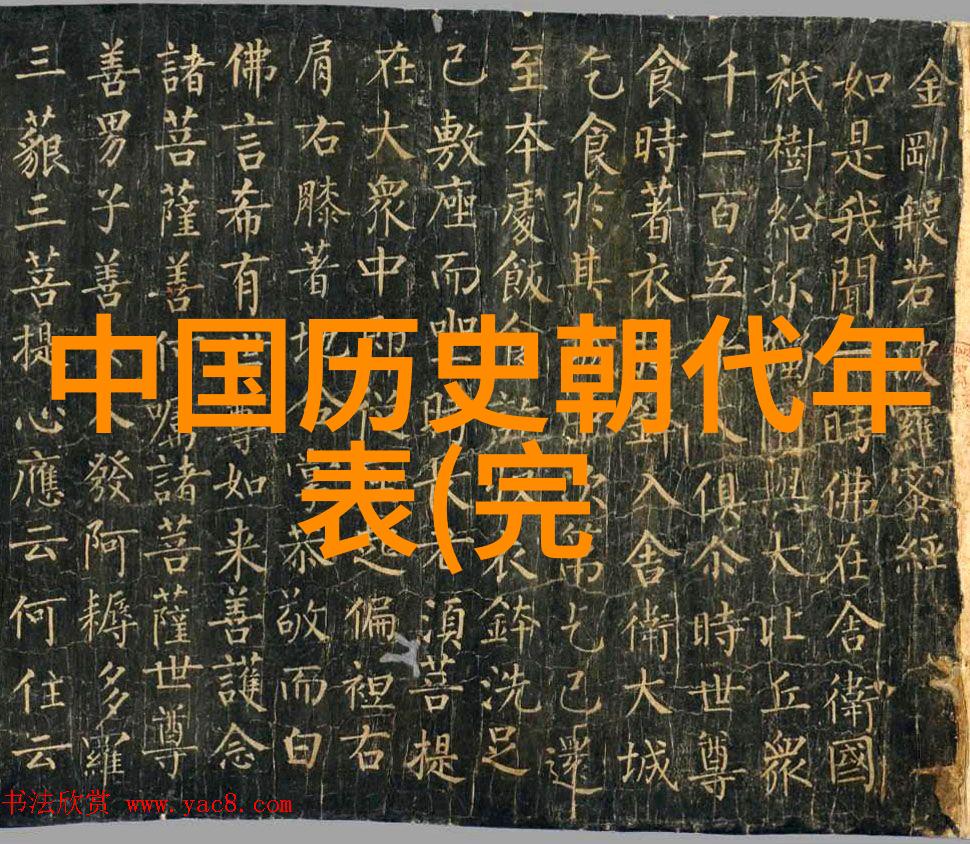 中国历史朝代年
表(完
金剛般若波羅蜜經
如是我聞一時佛在舍衛國
祇樹給孤獨園與大比丘眾
千二百五十人俱尒時世尊
食時著衣持鉢入舍衛大城
乞食扵其城中次第乞已還
至本處飯食訖收衣鉢洗足
已敷座而坐時長老湏菩提
在大眾中即從座起偏袒右
肩右膝著地合掌恭敬而白
佛言希有世尊如来善護念
諸菩薩善付嘱諸菩薩世尊
善男子善女人發阿耨多羅
三藐三菩提心應云何住云
书法欣赏 www.yac8.com